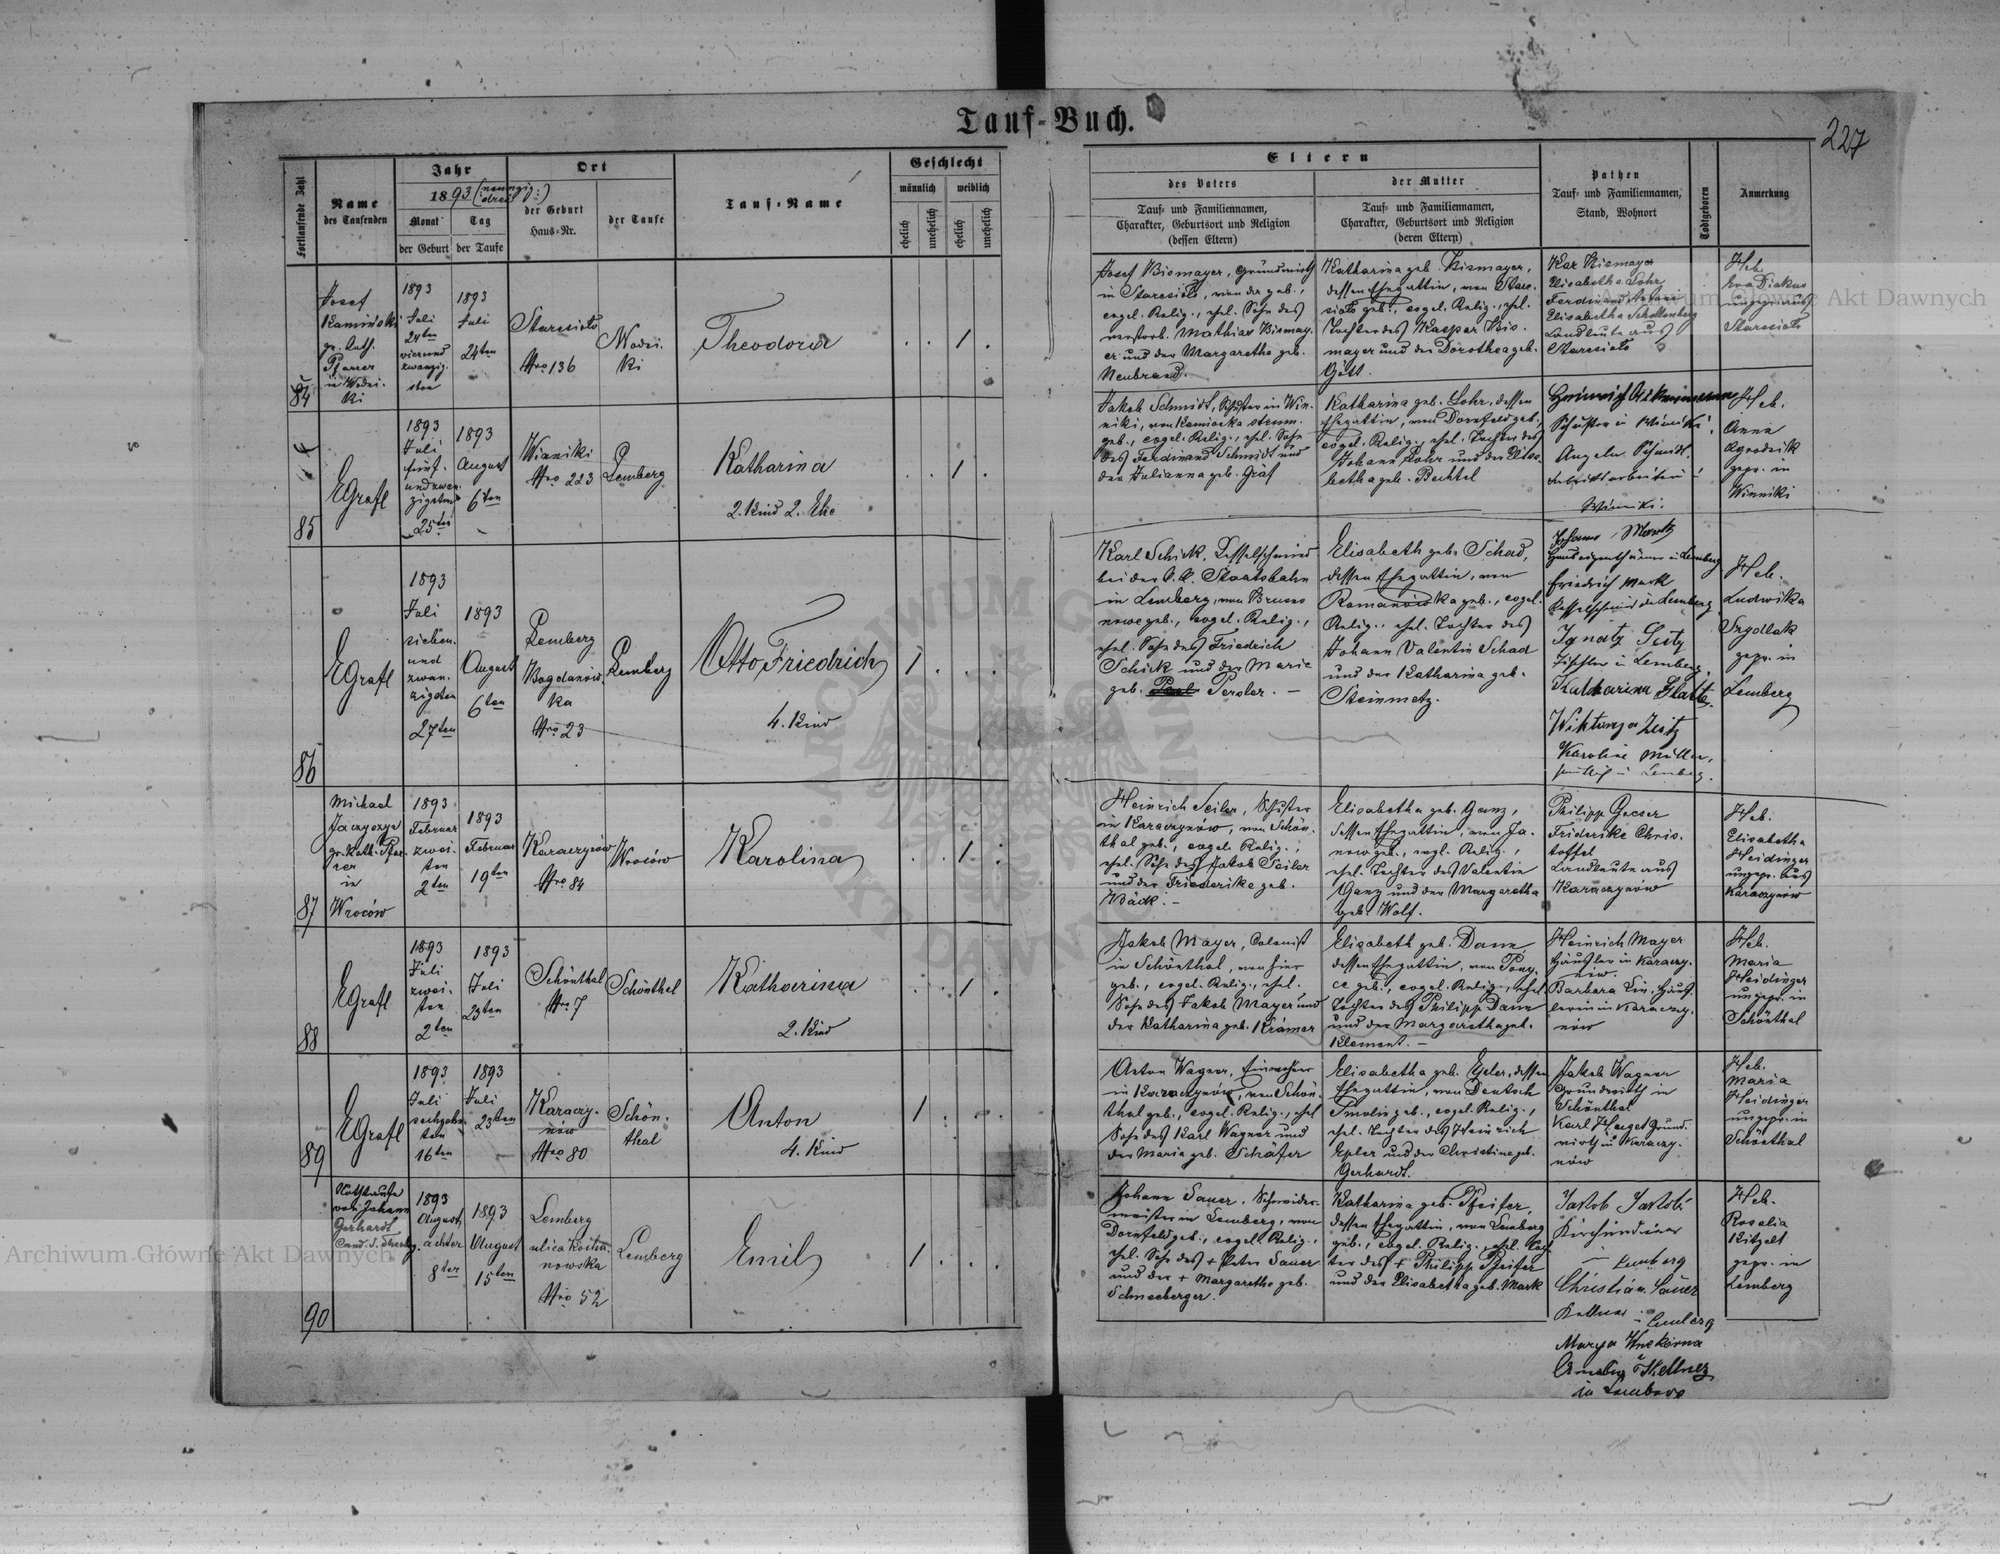 Tauf-Buch.
227
Fortlaufende Zahl
Name
des Taufenden
Jahr
1893 (neunzig:
drei)
Monat
Tag
der Geburt
der Taufe
Ort
der Geburt
Haus-Nr.
der Taufe
Tauf-Name
Geschlecht
männlich
weiblich
ehelich
unehelich
ehelich
unehelich
Eltern
des Vaters
Tauf- und Familiennamen,
Charakter, Geburtsort und Religion
(dessen Eltern)
der Mutter
Tauf- und Familiennamen,
Charakter, Geburtsort und Religion
(deren Eltern)
Pathen
Tauf- und Familiennamen,
Stand, Wohnort
Todtgeboren
Anmerkung
84
Josef
Kamiński
gr. kath.
Pfarrer
in Wodzi-
ki
1893
Juli
24ten
vierund
zwanzig-
sten
1893
Juli
24ten
Staresioło
Nro 136
Wodzi-
ki
Theodora
1
Josef Bismayer, Grundwirth
in Staresioło, von da geb.,
evgel. Relig., ehel. Sohn des
verstorb. Mathias Bismay-
er und der Margaretha geb.
Neubrand.
Katharina geb. Bismayer,
dessen Ehegattin, von Stare-
sioło geb., evgel. Relig., ehel.
Tochter des Kaspar Bis-
mayer und der Dorothea geb.
Gött.
Elisabetha Lohr
Ferdinand
Elisabetha Schellenberg
Landleute aus
Staresioło
Heb.
Eva
ungepr. aus
Staresioło
85
EGrafl
1893
Juli
fünf-
undzwan-
zigsten
25ten
1893
August
6ten
Winniki
Nro 223
Lemberg
Katharina
2. Kind 2. Ehe
1
Jakob Schmidt, Schuster in Win-
niki, von Kamionka strum.
geb., evgel. Relig., ehel. Sohn
des Ferdinand Schmidt und
der Julianna geb. Gräf
Katharina geb. Lohr, dessen
Ehegattin, von Dornfeld geb.,
evgel. Relig., ehel. Tochter des
Johann Lohr und der Elisa-
betha geb. Bechtel
Heinrich
Schuster in Winniki
Angela Schmidt
Winniki.
Heb.
Anna
Ogrodnik
gepr. in
Winniki
86
EGrafl
1893
Juli
sieben-
und
zwan-
zigsten
27ten
1893
August
6ten
Lemberg
Bogdanów-
ka
Nro 23
Lemberg
Otto Friedrich
4. Kind
1
Karl Schick, Kesselschmied
bei der k.k. Staatsbahn
in Lemberg, von Brunn-
nowe geb., evgel. Relig.,
ehel. Sohn des Friedrich
Schick und der Marie
geb. Persler. —
Elisabeth geb. Schad,
dessen Ehegattin, von
Romanówka geb., evgel.
Relig., ehel. Tochter des
Johann Valentin Schad
und der Katharina geb.
Steinmetz.
Johann Mark
Hauseigenthümer in Lemberg
Friedrich Mark
Kesselschmied in Lemberg
Ignatz Seitz
Tischler in Lemberg,
Katharina
Wiktorya Zeitz
Karoline Müller,
in Lemberg.
Heb.
Ludwika
Szydlak
gepr. in
Lemberg
87
Michael
gr. kath. Pfar-
rer
in
Wroców
1893
Februar
zwei-
ten
2ten
1893
Februar
19ten
Karaczynów
Nro 84
Wroców
Karolina
1
Heinrich Seiler, Schuster
in Karaczynów, von Schön-
thal geb., evgel. Relig.,
ehel. Sohn des Jakob Seiler
und der Friederike geb.
Bäck. —
Elisabetha geb. Ganz,
dessen Ehegattin, von Ja-
now geb., evgl. Relig.,
ehel. Tochter des Valentin
Ganz und der Margaretha
geb. Wolf.
Philipp
Friderike Chris-
toffel
Landleute aus
Karaczynów
Heb.
Elisabetha
Heidinger
ungepr. aus
Karaczynów
88
EGrafl
1893
Juli
zwei-
ten
2ten
1893
Juli
23ten
Schönthal
Nro 7
Schönthal
Katharina
2. Kind
1
Jakob Mayer, Colonist
in Schönthal, von hier
geb., evgel. Relig., ehel.
Sohn des Jakob Mayer und
der Katharina geb. Krämer
Elisabeth geb. Dann,
dessen Ehegattin, von
geb., evgel. Relig., ehel.
Tochter des Philipp Dann
und der Margaretha geb.
Klement. —
Heinrich Mayer
Häusler in Karaczy-
nów.
Barbara
lerin in Karaczy-
nów
Heb.
Maria
Heidinger
ungepr. in
Schönthal
89
EGrafl
1893
Juli
sechzehn-
ten
16ten
1893
Juli
23ten
Karaczy-
nów
Nro 80
Schön-
thal
Anton
4. Kind
1
Anton Wagner, Einwohner
in Karaczynów, von Schön-
thal geb., evgel. Relig., ehel.
Sohn des Karl Wagner und
der Maria geb. Schäfer
Elisabetha geb. Epler, dessen
Ehegattin, von Deutsch
Smolin geb., evgel. Relig.,
ehel. Tochter des Heinrich
Epler und der Christine geb.
Gerhardt.
Jakob Wagner
Grundwirth in
Schönthal
Karl Grund-
wirth in Karaczy-
nów
Heb.
Maria
Heidinger
ungepr. in
Schönthal
90
Nothtaufe
von Johann
Gerhardt
Cand. d. Theolog.
1893
August
achter
8ter
1893
August
15ten
Lemberg
ulica Kocha-
nowska
Nro 52
Lemberg
Emil
1
Johann Sauer, Schneider-
meister in Lemberg, von
Dornfeld geb., evgel. Relig.,
ehel. Sohn des + Peter Sauer
und der + Margaretha geb.
Schneeberger.
Katharina geb. Pfeifer,
dessen Ehegattin, von Lemberg
geb., evgel. Relig., ehel. Toch-
ter des + Philipp Pfeifer
und der Elisabetha geb. Mark
Jakob Jakobi
Kirchendiener
in Lemberg
Christian Sauer
Kellner in Lemberg
Marya
in Lemberg
Heb.
Rosalia
Kitzelt
gepr. in
Lemberg
Archiwum Główne Akt Dawnych
Archiwum Główne Akt Dawnych
ARCHIWUM GŁÓWNE AKT DAWNYCH